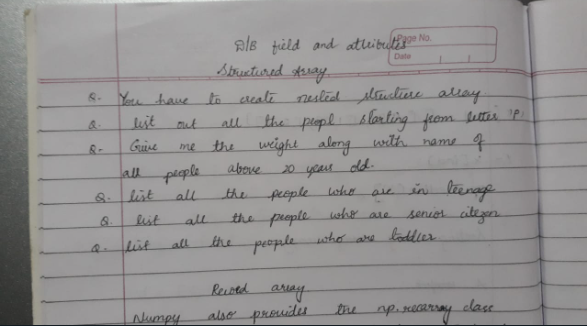 D/B field and attributes
Page No.
Date
Structured Array
Q. You have to create nested structure array
Q. list out all the peopl starting from letter 'p.
Q. Give me the weight along with name of
all people above 20 years old.
Q. list all the people who are in teenage
Q. list all the people who are senior citezen
Q. list all the people who are toddler.
Record array
Numpy also provides the np.recarray class